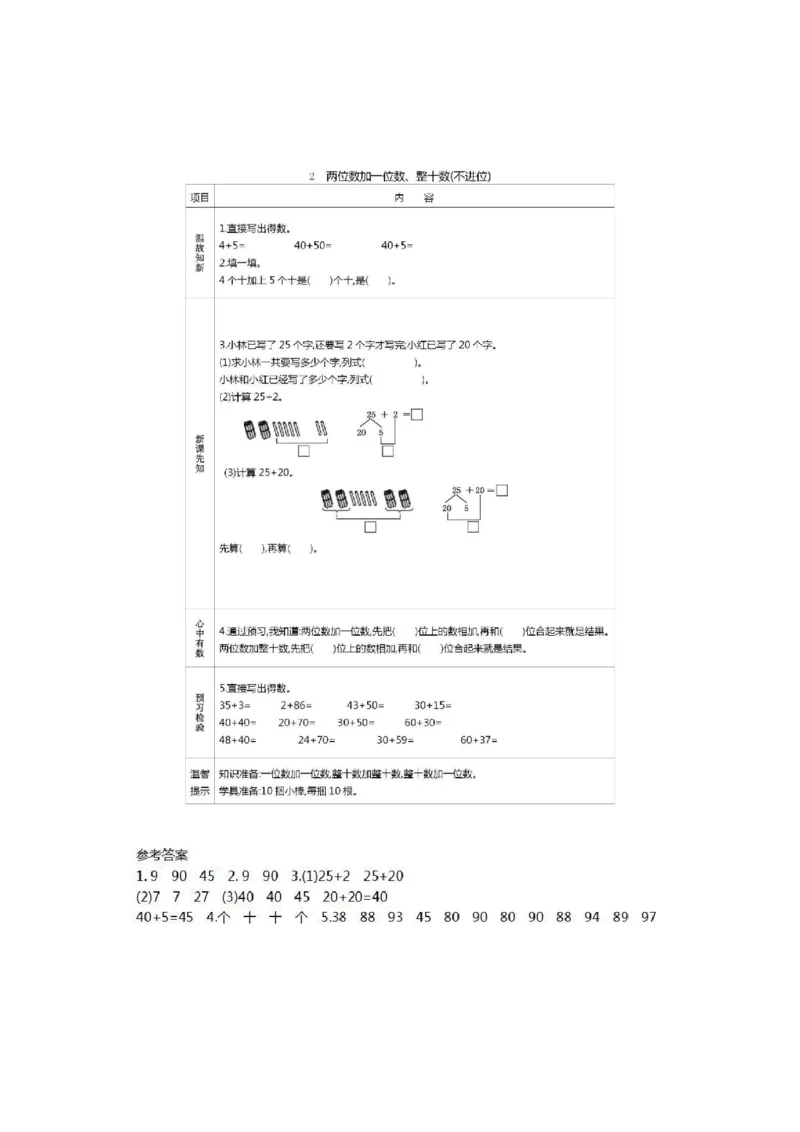 2 两位数加一位数、整十数(不进位)
项目 内 容
温故知新
1.直接写出得数。
4+5= 40+50= 40+5=
2.填一填。
4个十加上5个十是( )个十,是( )。
新课先知
3.小林已写了25个字,还要写2个字才写完;小红已写了20个字。
(1)求小林一共要写多少个字,列式( )。
小林和小红已经写了多少个字,列式( )。
(2)计算25+2。
25 + 2 =□
20 5
(3)计算25+20。
25 +20 =□
20 5
先算( ),再算( )。
心中有数
4.通过预习,我知道:两位数加一位数,先把( )位上的数相加,再和( )位合起来就是结果。
两位数加整十数,先把( )位上的数相加,再和( )位合起来就是结果。
预习检验
5.直接写出得数。
35+3= 2+86= 43+50= 30+15=
40+40= 20+70= 30+50= 60+30=
48+40= 24+70= 30+59= 60+37=
温馨提示
知识准备:一位数加一位数,整十数加整十数,整十数加一位数。
学具准备:10捆小棒,每捆10根。
参考答案
1.9 90 45 2.9 90 3.(1)25+2 25+20
(2)7 7 27 (3)40 40 45 20+20=40
40+5=45 4.个 十 十 个 5.38 88 93 45 80 90 80 90 88 94 89 97